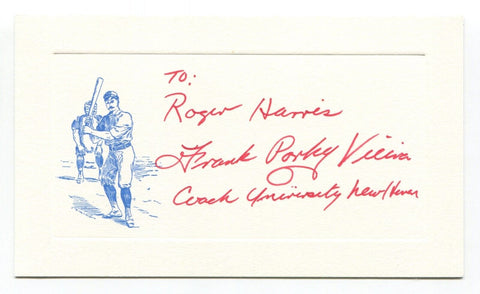 To:
Roger Harris
Frank Porky Vieira
Coach University New Haven